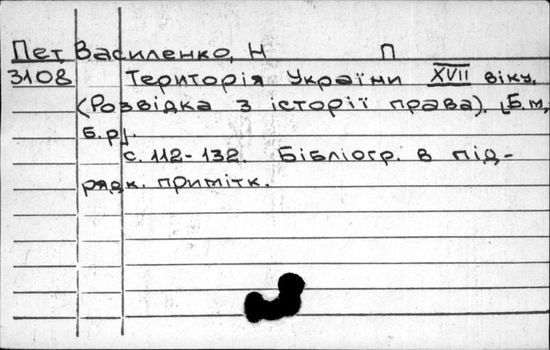 Пет Василенко, Н П
3108 Територія України XVII віку.
(Розвідка з історії права). [Б.м,
б.р].
с. 112-132. Бібліогр. в під-
рядк. примітк.